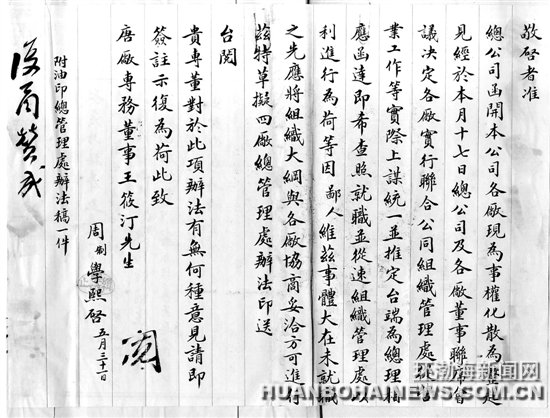 敬啓者准
總公司函開本公司各廠現為事權化散為整起
見經於本月十七日總公司及各廠董事聯席會
議决定各廠實行聯合公同組織管理處從營
業工作等實際上謀統一並推定台端為總理相
應函達即希查照就職並從速組織管理處以
利進行為荷等因鄙人維兹事體大在未就職
之先應將組織大綱與各廠協商妥洽方可進行
兹特草擬四廠總管理處辦法印送
台閱
貴專董對於此項辦法有無何種意見請即
簽註示復為荷此致
唐廠專務董事王筱汀先生
周制學熙啓 五月三十一日
附油印總管理處辦法稿一件
贊成
环渤海新闻网
HUANBOHAINEWS.COM